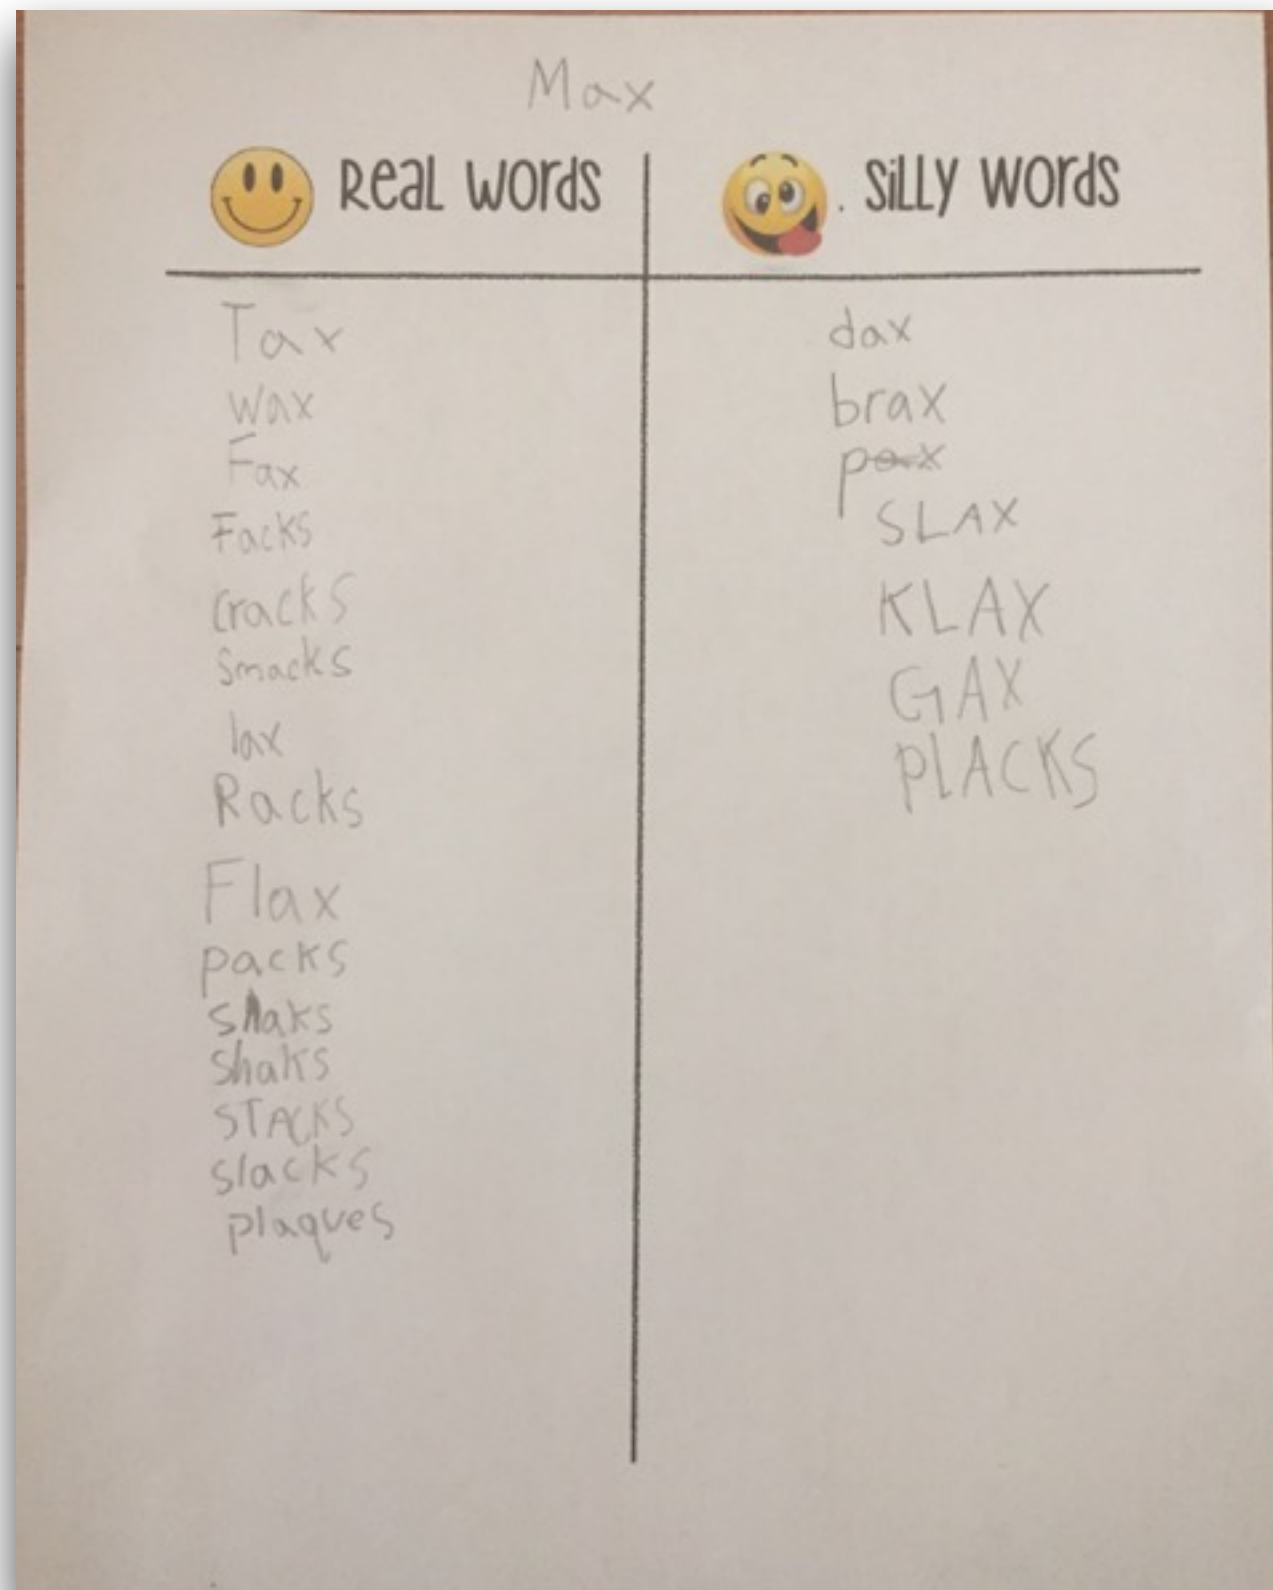 Max
Real words
. Silly words
Tax
wax
Fax
Facks
cracks
smacks
lax
Racks
Flax
packs
snaks
shaks
STACKS
slacks
plaques
dax
brax
pax
SLAX
KLAX
GAX
PlACKS